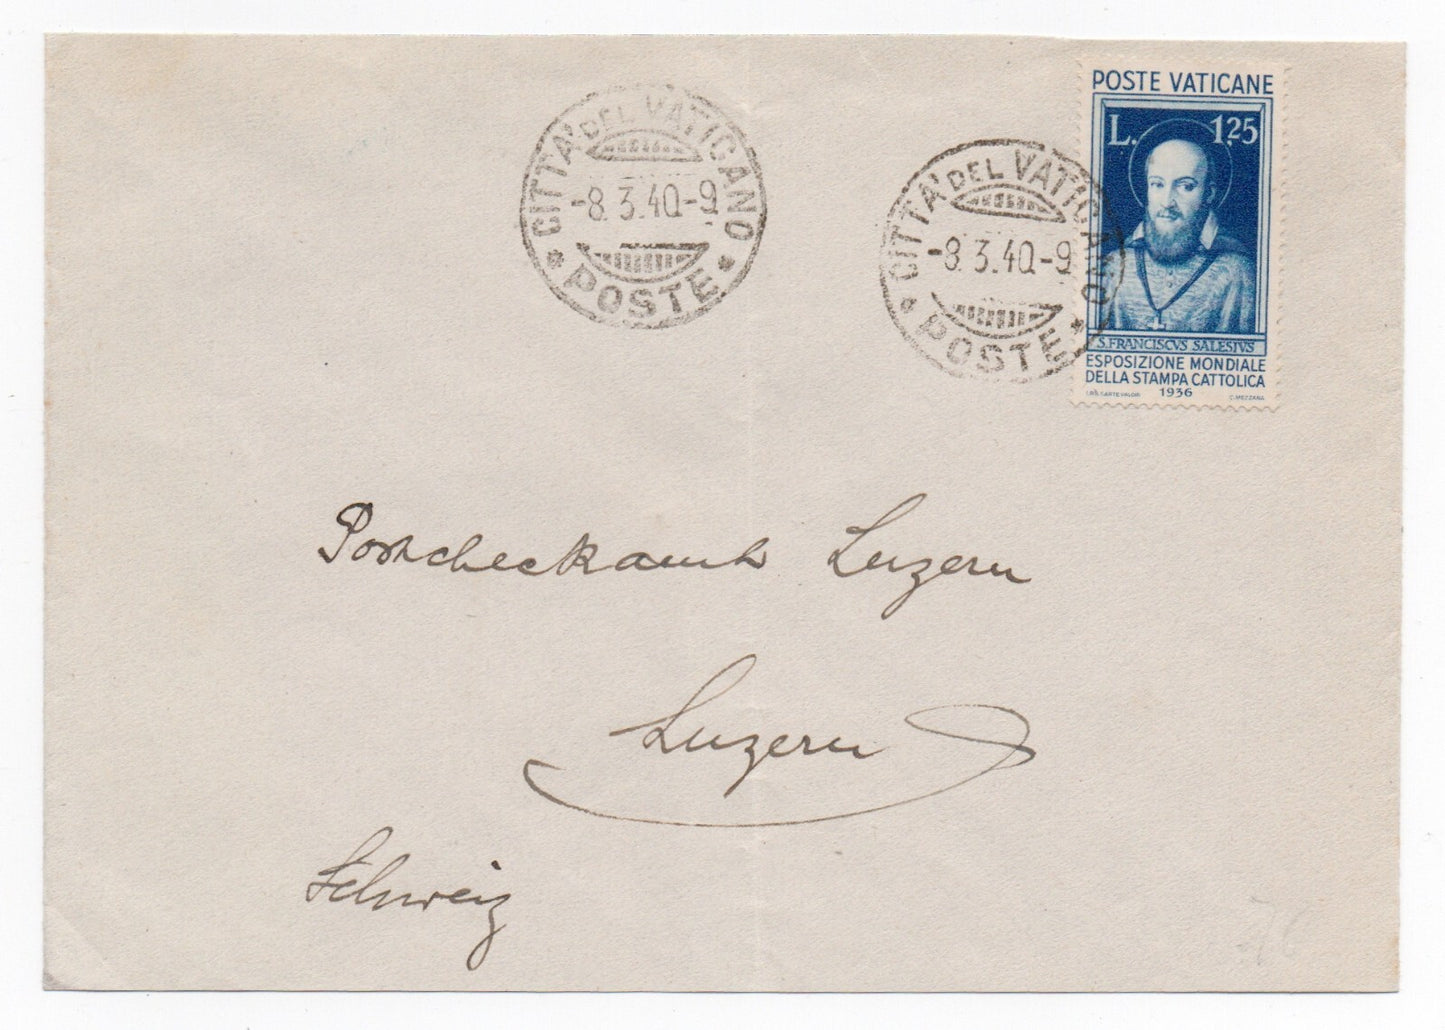 CITTA' DEL VATICANO
-8.3.40.-9
* POSTE *
CITTA' DEL VATICANO
-8.3.40.-9
* POSTE *
POSTE VATICANE
L. 1,25
S.FRANCISCVS SALESIVS
ESPOSIZIONE MONDIALE
DELLA STAMPA CATTOLICA
1936
C.MEZZANA
Postcheckamt Luzern
Luzern
Schweiz